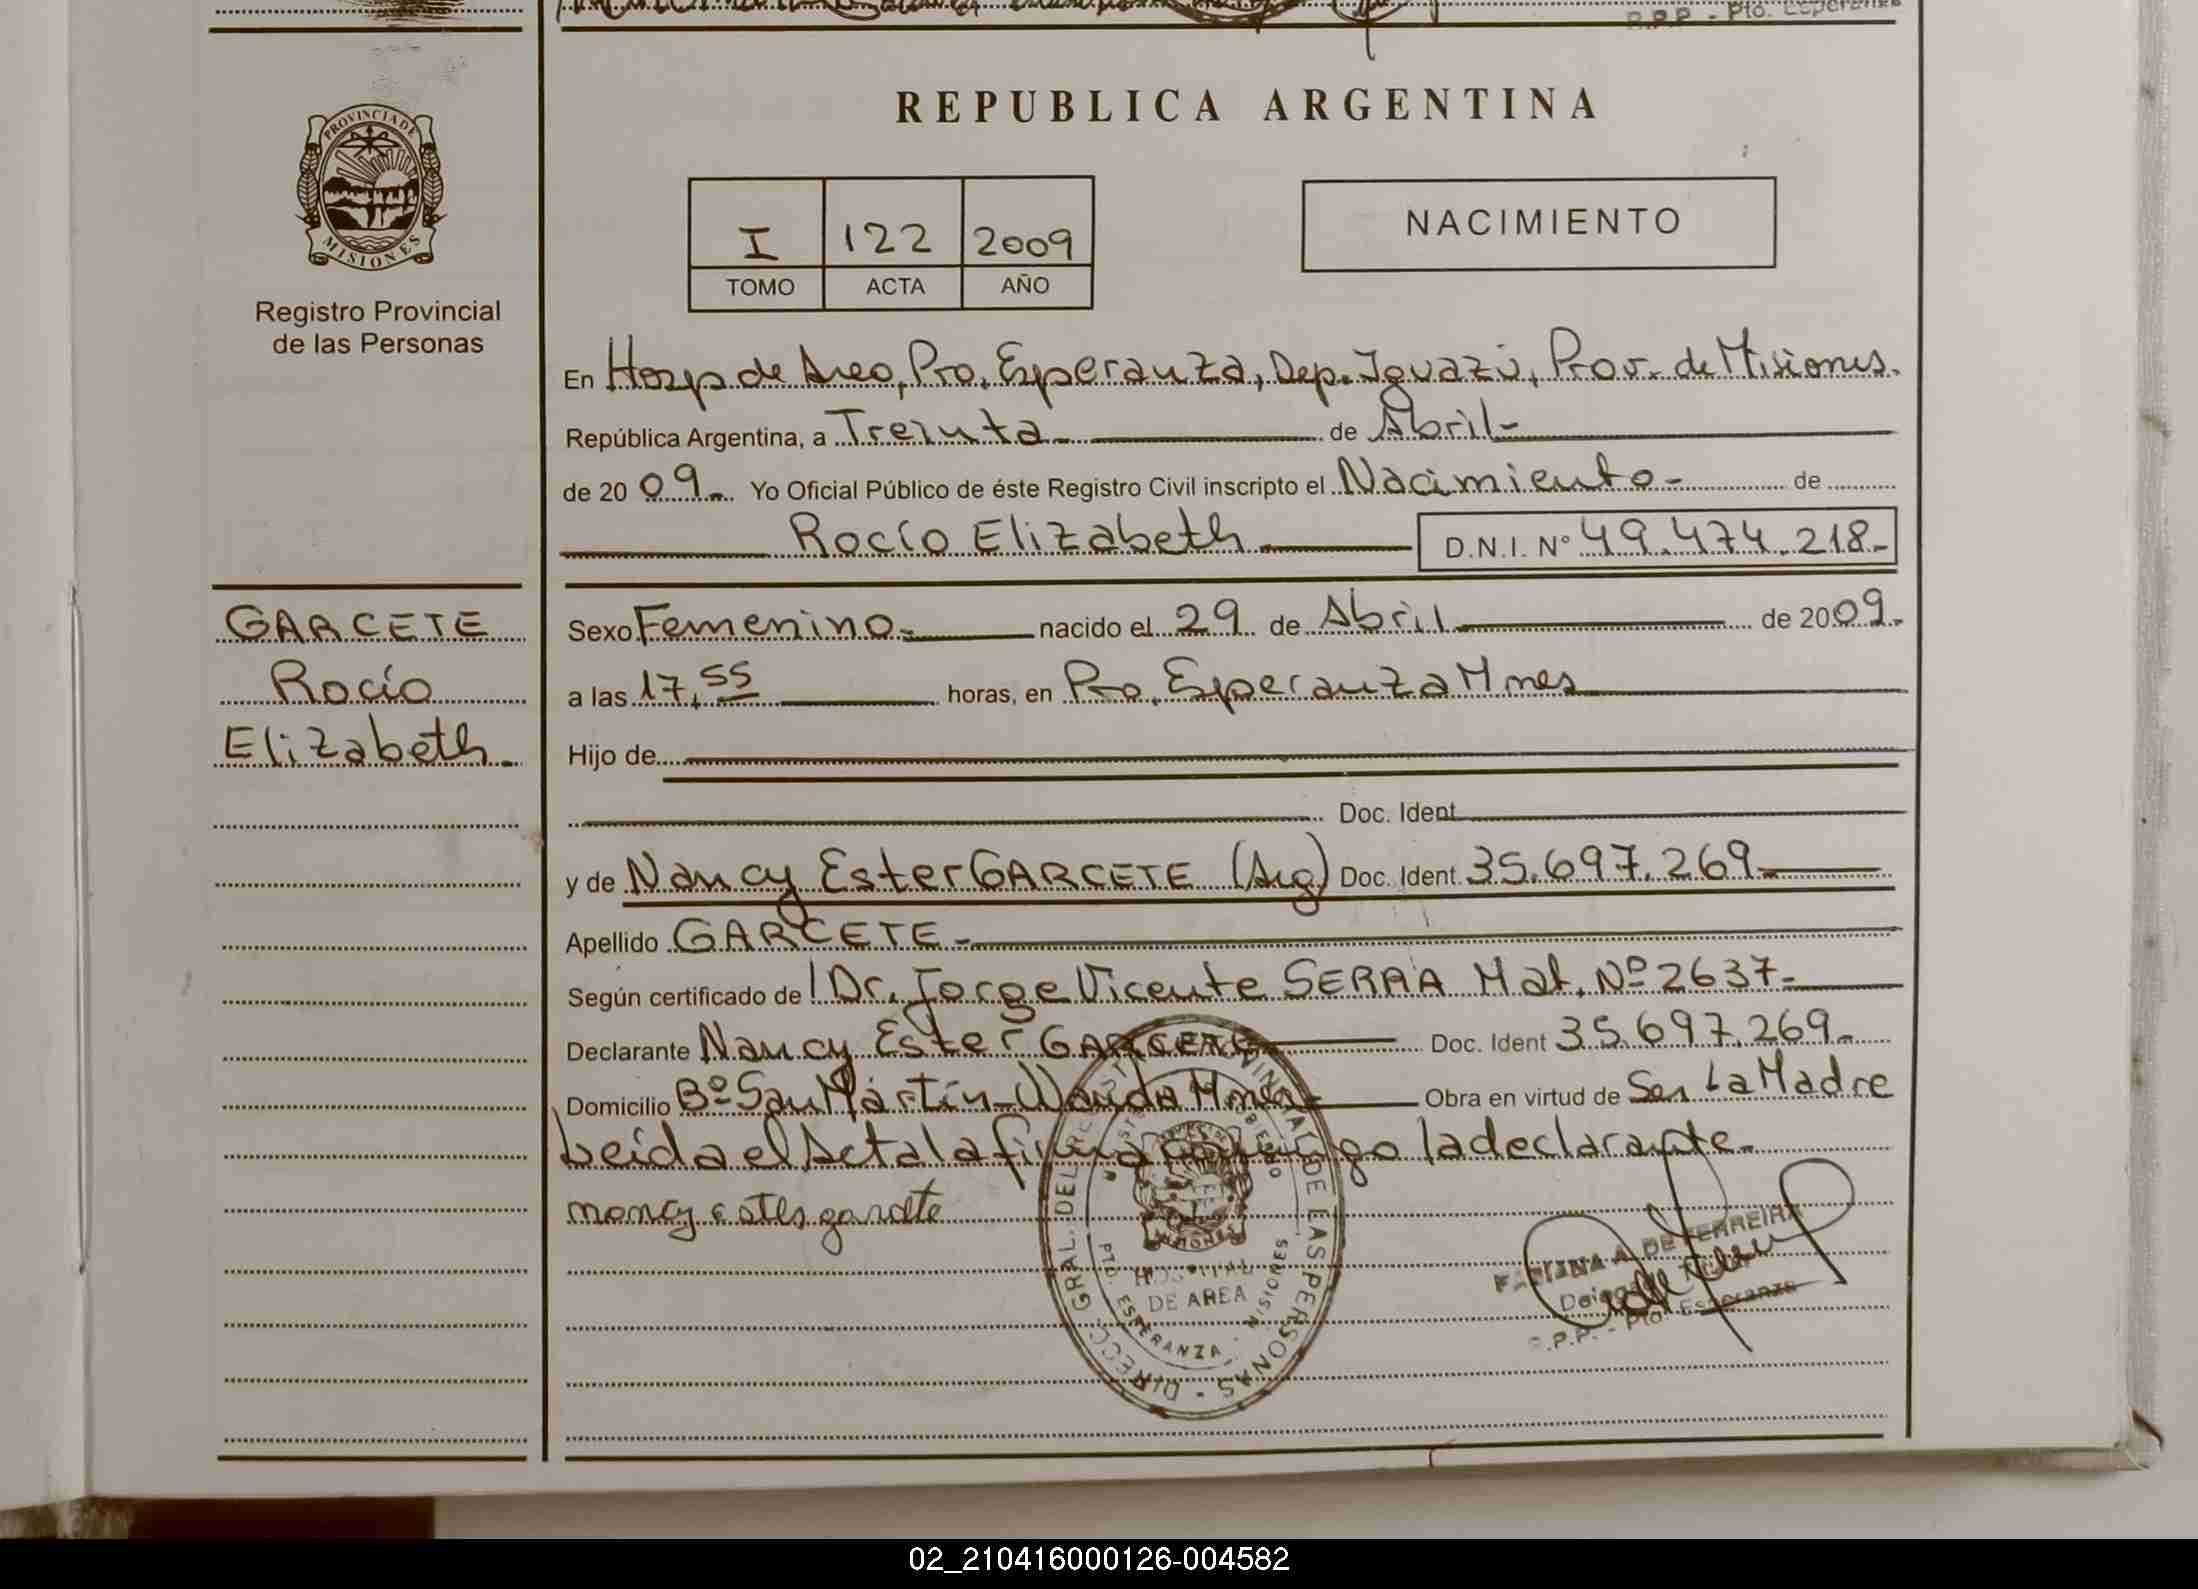 R.P.P. - Pto. Esperanza
PROVINCIA DE
MISIONES
Registro Provincial
de las Personas
REPUBLICA ARGENTINA
I 122 2009
TOMO ACTA AÑO
NACIMIENTO
En Hosp de Area, Pto. Esperanza, Dep. Iguazú, Prov. de Misiones.
República Argentina, a Treinta de Abril-
de 20 09 Yo Oficial Público de éste Registro Civil inscripto el Nacimiento- de
Rocío Elizabeth D.N.I. N° 49.474.218-
GARCETE
Rocío
Elizabeth
Sexo Femenino- nacido el 29 de Abril de 2009-
a las 17,55 horas, en Pto. Esperanza Mnes
Hijo de
Doc. Ident
y de Nancy Ester GARCETE (Arg) Doc. Ident 35.697.269-
Apellido GARCETE-
Según certificado de Dr. Jorge Vicente SERRA Mat. Nº 2637-
Declarante Nancy Ester GARCETE Doc. Ident 35.697.269-
Domicilio Bº San Martín-Wanda Mnes- Obra en virtud de Ser La Madre
Leída el Acta la firma conmigo la declarante-
nancy ester garcete
DIRECC. GRAL. DEL REGISTRO PROVINCIAL DE LAS PERSONAS
MISIONES
HOSPITAL
DE AREA
PTO. ESPERANZA - MISIONES
A. DE FERREIRA
R.P.P. - Pto. Esperanza
02_210416000126-004582